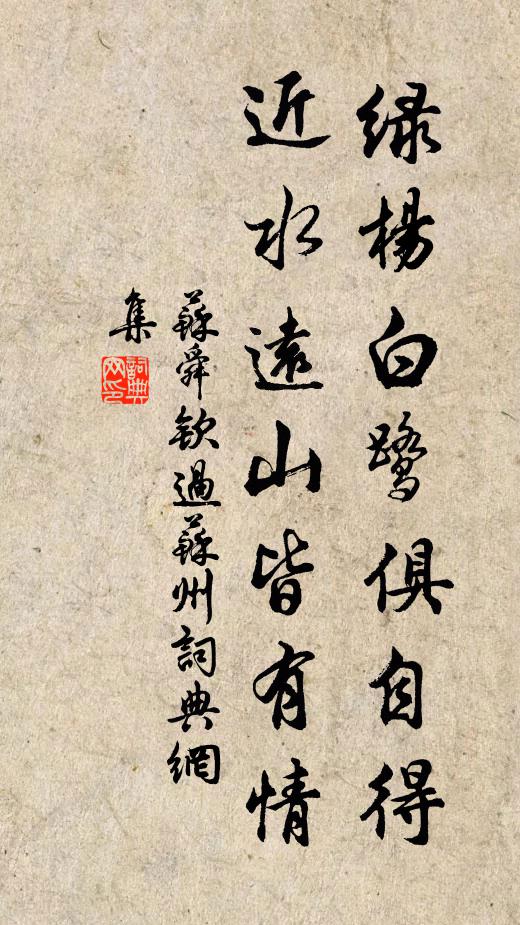 綠楊白鷺俱自得
近水遠山皆有情
蘇舜欽過蘇州詞典網
集
詞典
网印